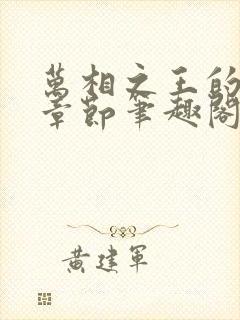 萬相之王的
章節筆趣閣
黃建軍